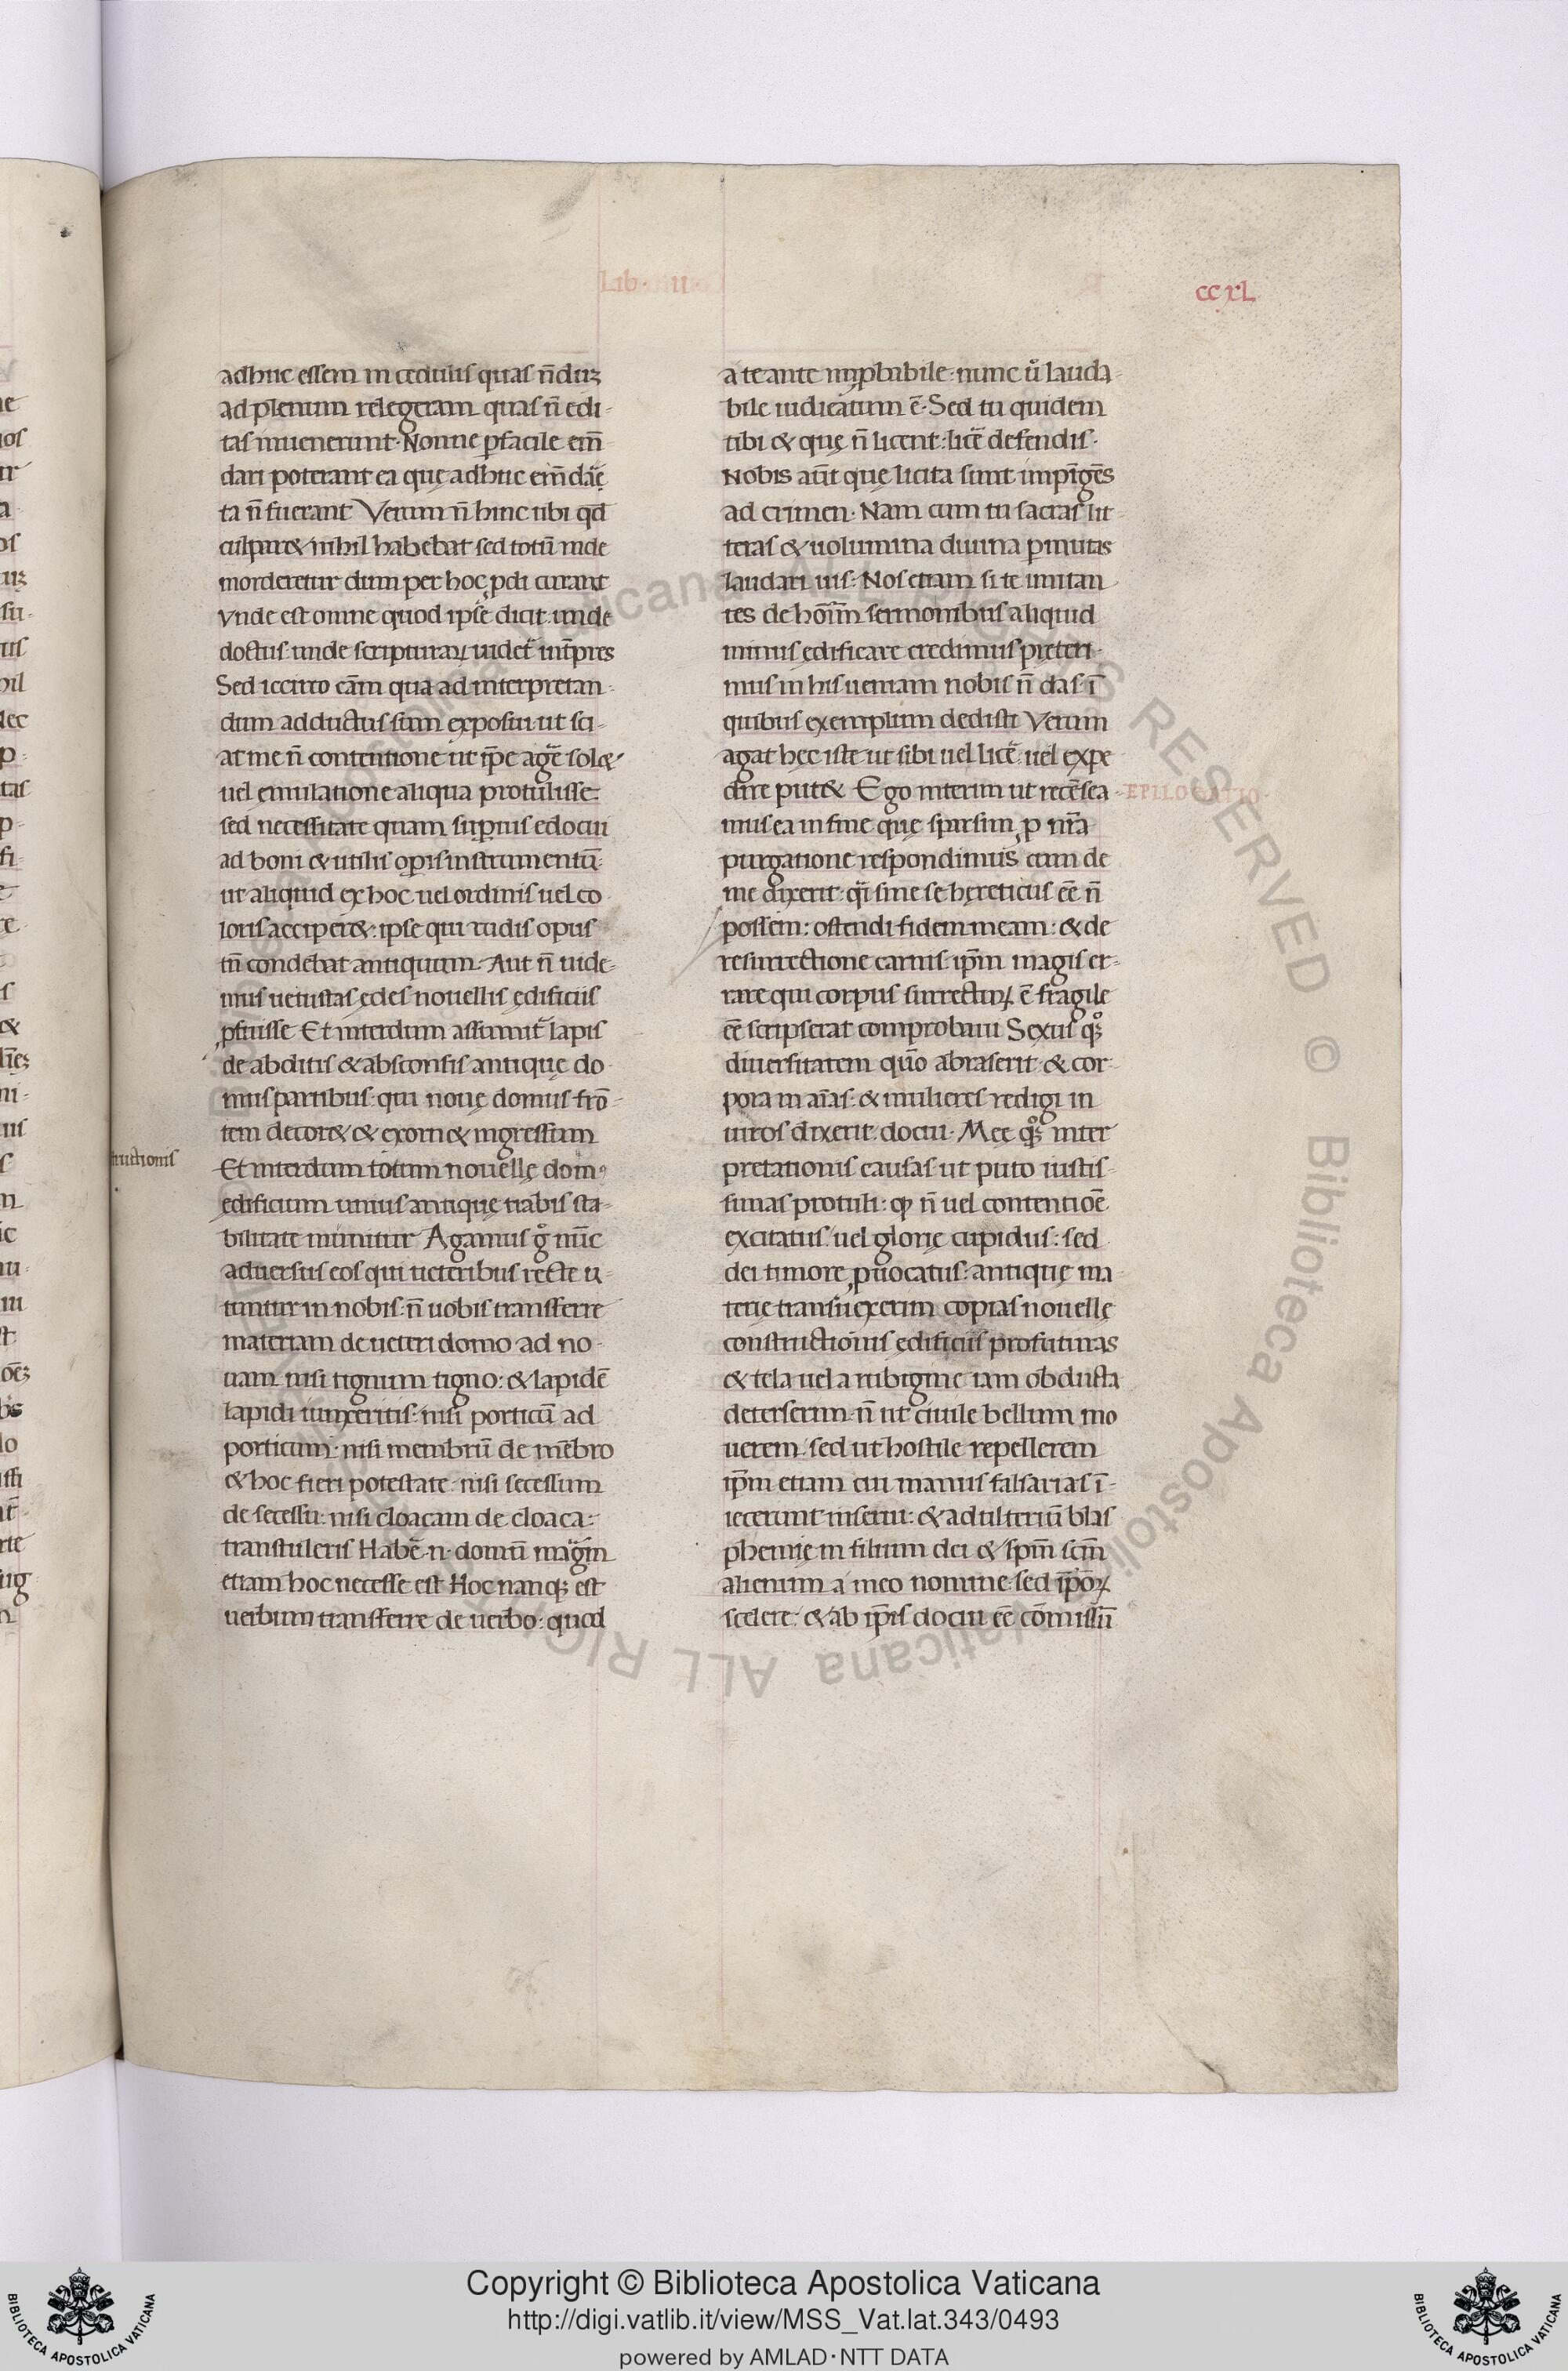 Lib·
ccxL
adhuc essem in cedulis quas n̄duꝫ
ad plenum relegeram quas n̄ edi-
tas inuenerunt· Nonne ꝑfacile em̄
dari poterant ea quę adhuc em̄dat̄ę
ta n̄ fuerant Verum n̄ hinc tibi qd̄
culpar& nihil habebat sed totū inde
morderetur dum per hoc ꝓdi curant
vnde est omne quod ipse dicit· unde
doctus· unde scripturaꝝ uidet̄ int̄pres
Sed iccirco cām qua ad interpretan-
dum adductus sum exposui· ut sci-
at me n̄ contentione ut ip̄e agē̄ sol&
uel emulatione aliqua protulisse·
sed necessitate quam supͥus edocui
ad boni & utilis oꝑis instrumentū·
ut aliquid ex hoc uel ordinis uel co
loris acciper&· ipse qui rudis opus
tn̄ condebat antiquum· Aut n̄ uide-
mus uetustas ędes nouellis ędificiis
ꝓfuisse Et interdum assumit̄ lapis
de abditis & absconsis antiquę do
mus partibus· qui nouę domus frō-
tem decor& & exorn& ingressum
structionis
Et interdum totum nouellę domꝰ
ędificium unius antiquę trabis sta-
bilitate munitur Agamus gͦ nūc
aduersus eos qui ueteribus recte u-
tuntur in nobis· n̄ uobis transferre
materiam de ueteri domo ad no-
uam nisi tignum tigno· & lapidē
lapidi iunxeritis· nisi porticū ad
porticum· nisi membrū de mēbro
& hoc fieri potestate· nisi secessum
de secessu· nisi cloacam de cloaca·
transtuleris Habē̄·n·domū mag̈in
etiam hoc necesse est Hoc nanqꝫ est
uerbum transferre de uerbo· quod
a te ante imꝓbabile· nunc ů lauda-
bile iudicatum ē· Sed tu quidem
tibi & quę n̄ licent· licē̄ defendis·
Nobis aūt quę licita sunt impīgēs
ad crimen· Nam cum tu sacras lit
teras & uolumina diuina ꝑmutās
laudari uis· Nos etiam si te imitan
tes de hoīm sermonibus aliquid
minus edificare credimus preteri-
mus in his ueniam nobis n̄ das· ī
quibus exemplum dedisti Verum
agat hęc iste· ut sibi uel licē̄· uel expe
dire put& Ego interim ut recēsea-
EPILOGATIO·
mus ea in fine quę sparsim ꝓ nr̄a
purgatione respondimus cum de
me dixerit· qͣi sine se hęreticus eē n̄
possem· ostendi fidem meam· & de
resurrectione carnis· ip̄m magis er-
rare qui corpus surrectuꝝ ē fragile
eē scripserat comprobaui Sexus qͦꝫ
diuersitatem quō abraserit· & cor-
pora in aīas· & mulieres redigi in
uiros dixerit· docui· Meę qͦꝫ inter
pretationis causas· ut puto iustis-
simas protuli· qͦ n̄ uel contentiōe
excitatus· uel glorię cupidus· sed
dei timore ꝓuocatus· antiquę ma
terię transuexerim copias nouellę
constructionis ędificiis profuturas
& tela uela rubigine iam obducta
deterserim· n̄ ut ciuile bellum mo
uerem· sed ut hostile repellerem
ip̄m etiam cui manus falsarias ī-
iecerunt inserui· & adulteriū blas
phemię in filium dei & spm̄ scm̄
alienum a meo nomine· sed ip̄oꝝ
scelere· & ab ip̄is docui eē cōmissū
Copyright © Biblioteca Apostolica Vaticana
http://digi.vatlib.it/view/MSS_Vat.lat.343/0493
powered by AMLAD·NTT DATA
BIBLIOTECA APOSTOLICA VATICANA
BIBLIOTECA APOSTOLICA VATICANA